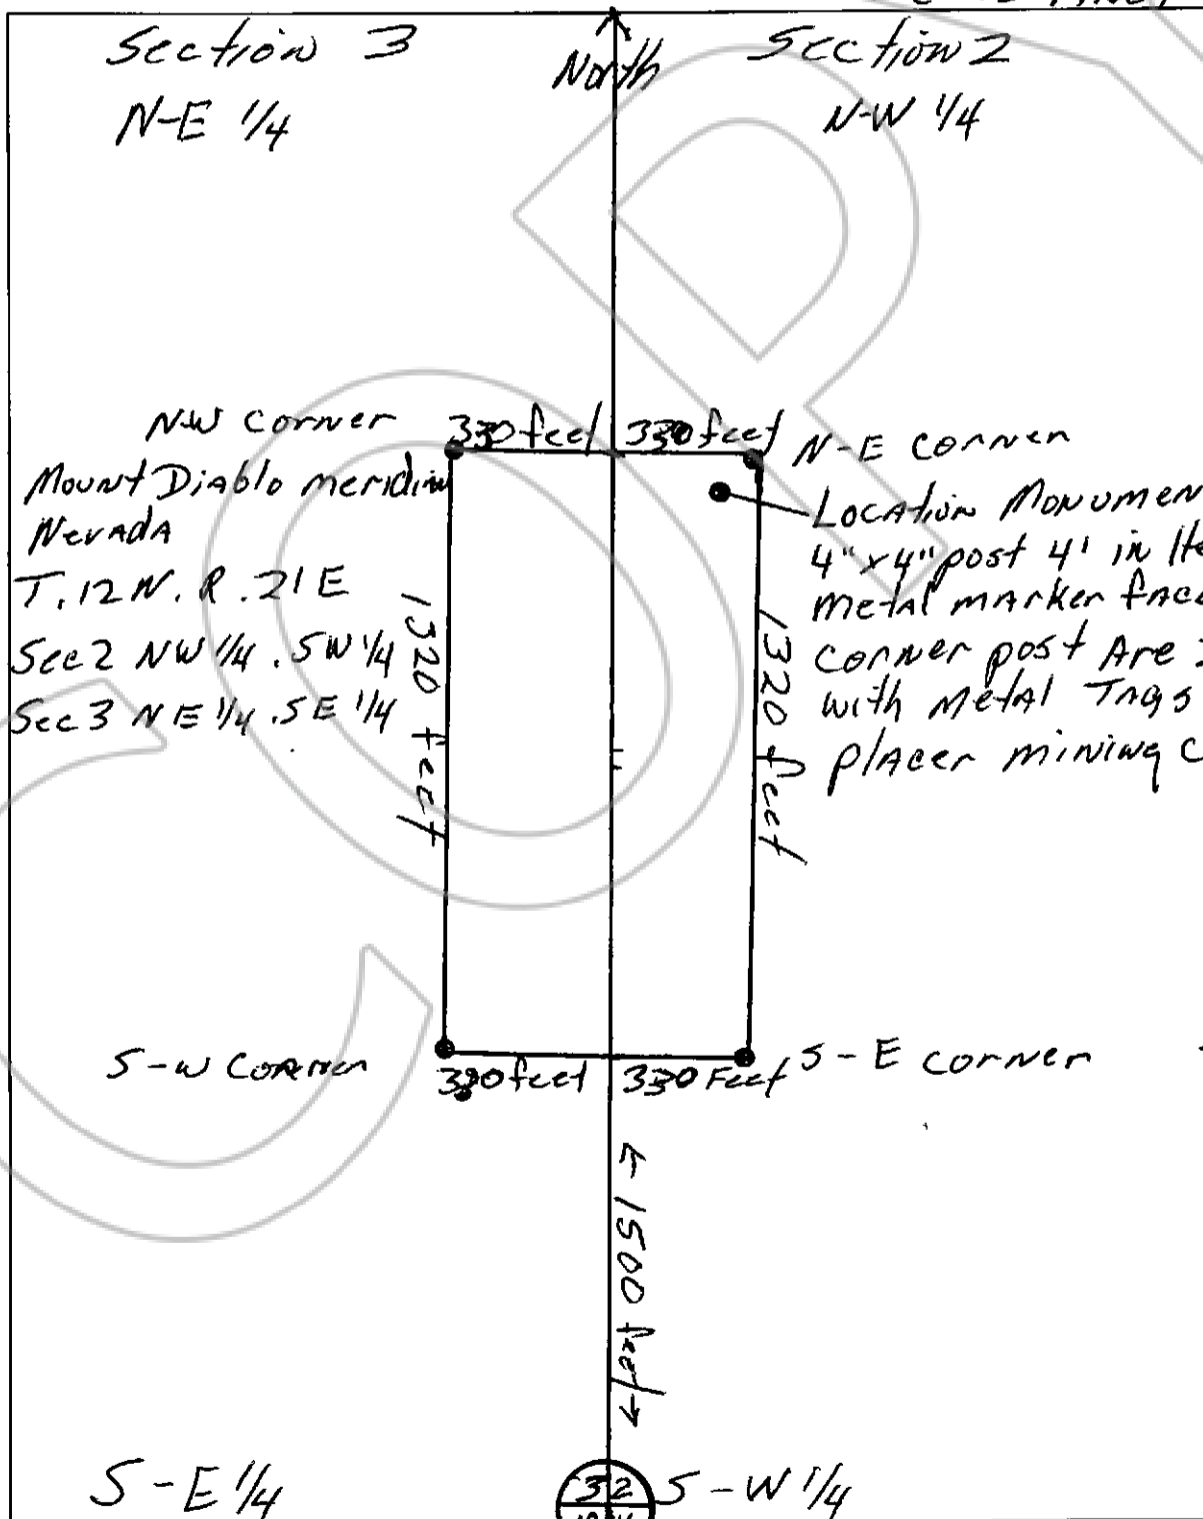 Section 3
North
Section 2
N-E 1/4
N-W 1/4
NW Corner
330 feet
330 feet
N-E Corner
Mount Diablo meridian
Nevada
T. 12 N. R. 21 E
Sec 2 NW 1/4 . SW 1/4
Sec 3 NE 1/4 . SE 1/4
1320 feet
Location Monumen
4" x 4" post 4' in
Metal marker face
corner post Are
with Metal Tags
placer mining C
1320 feet
S-W Corner
330 feet
330 Feet
S-E corner
← 1500 feet →
S-E 1/4
32
S-W 1/4
COP